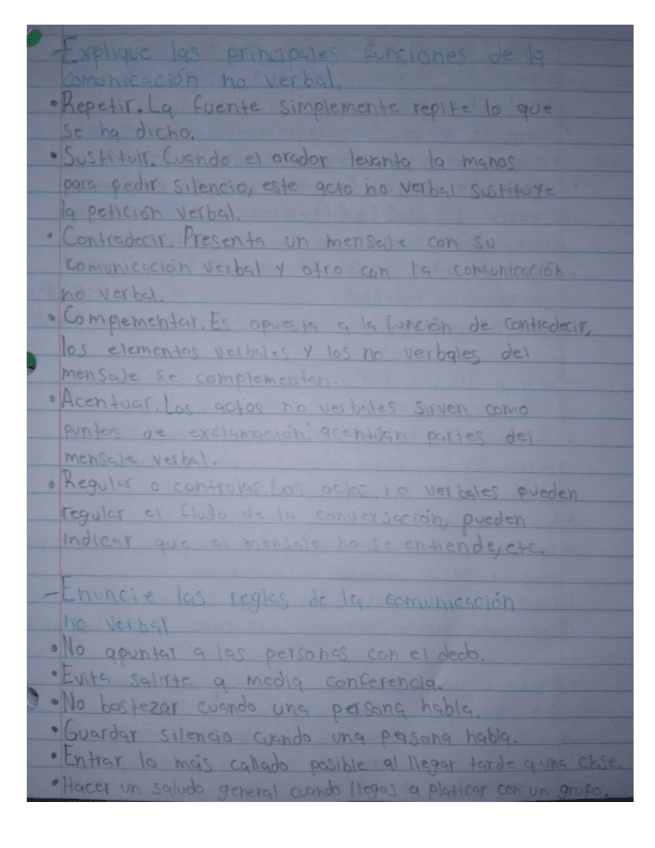 -Explique las principales funciones de la
comunicación no verbal.
•Repetir. La fuente simplemente repite lo que
se ha dicho.
•Sustituir. Cuando el orador levanta la manos
para pedir silencio, este acto no verbal sustituye
la petición verbal.
•Contradecir. Presenta un mensaje con su
comunicación verbal y otro con la comunicación
no verbal.
•Complementar. Es opuesta a la función de contradecir,
los elementos verbales y los no verbales del
mensaje se complementan.
•Acentuar. Los actos no verbales sirven como
puntos de exclamación: acentúan partes del
mensaje verbal.
•Regular o controlar. Los actos no verbales pueden
regular el flujo de la conversación, pueden
indicar que el mensaje no se entiende, etc.
-Enuncie las reglas de la comunicación
no verbal
•No apuntar a las personas con el dedo.
•Evita salirte a media conferencia.
•No bostezar cuando una persona habla.
•Guardar silencio cuando una persona habla.
•Entrar lo más callado posible al llegar tarde a una clase.
•Hacer un saludo general cuando llegas a platicar con un grupo.